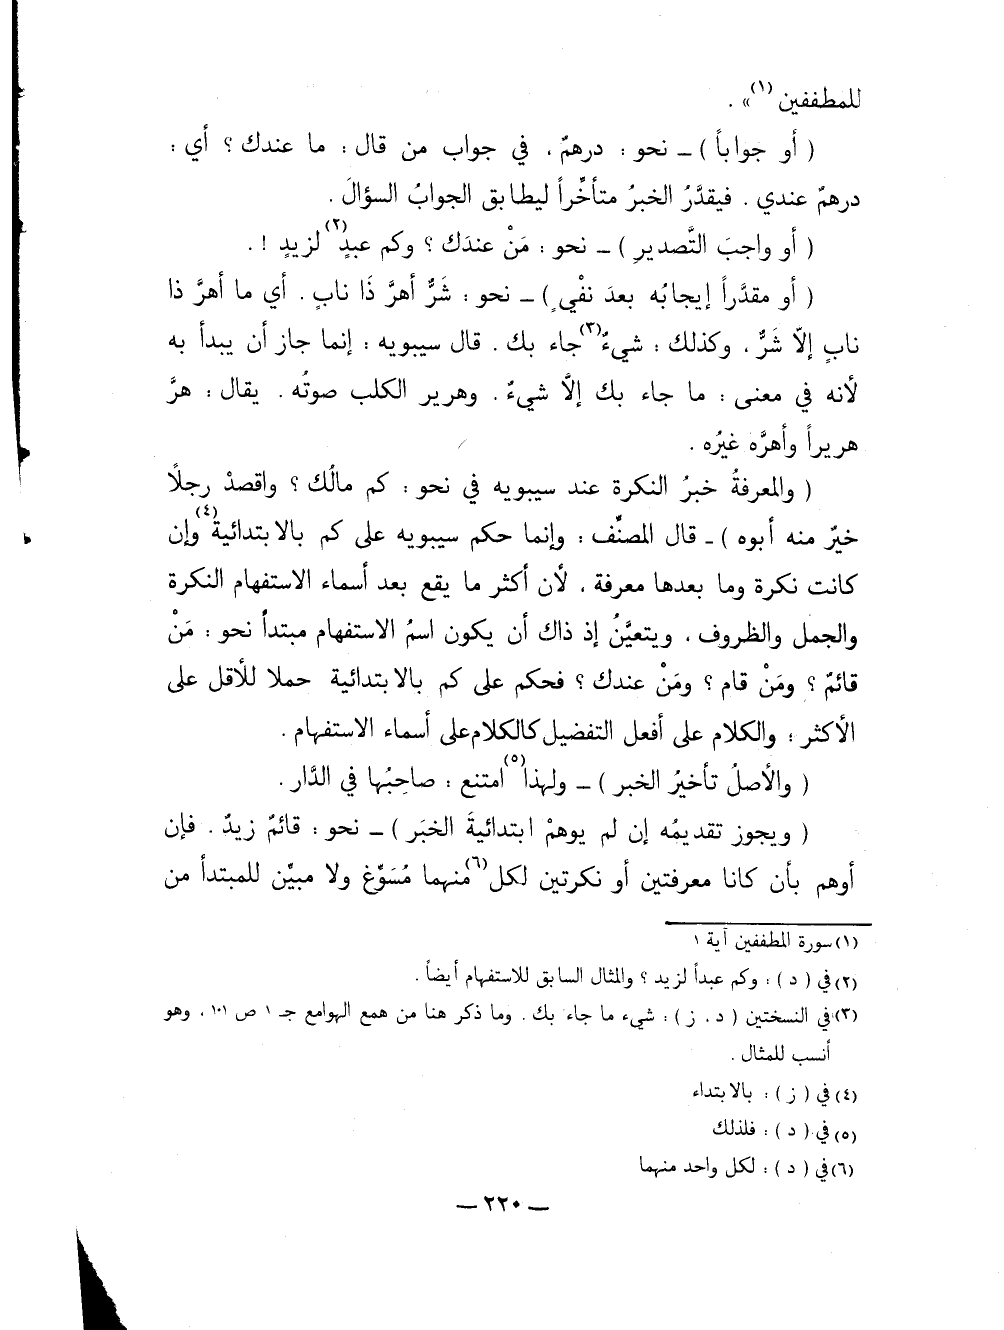 للمطففين (١)» .
( أو جواباً ) ــ نحو : درهمٌ ، في جواب من قال : ما عندك ؟ أي :
درهمٌ عندي . فيقدَّرُ الخبرُ متأخِّراً ليطابق الجوابُ السؤالَ .
( أو واجبَ التَّصدير ) ــ نحو : مَنْ عندَك ؟ وكم عبدٍ(٢) لزيدٍ ! .
( أو مقدَّراً إيجابُه بعدَ نفْيٍ ) ــ نحو : شَرٌّ أهرَّ ذَا نابٍ . أي ما أهرَّ ذا
نابٍ إلاّ شَرٌّ ، وكذلك : شيءٌ(٣) جاء بك . قال سيبويه : إنما جاز أن يبدأ به
لأنه في معنى : ما جاء بك إلاَّ شيءٌ . وهرير الكلب صوتُه . يقال : هرَّ
هريراً وأهرَّه غيرُه .
( والمعرفةُ خبرُ النكرة عند سيبويه في نحو : كم مالُك ؟ واقصدْ رجلًا
خيرٌ منه أبوه ) ــ قال المصنِّف : وإنما حكم سيبويه على كم بالابتدائية(٤) وإن
كانت نكرة وما بعدها معرفة ، لأن أكثر ما يقع بعد أسماء الاستفهام النكرة
والجمل والظروف ، ويتعيَّنُ إذ ذاك أن يكون اسمُ الاستفهام مبتدأً نحو : مَنْ
قائمٌ ؟ ومَنْ قام ؟ ومَنْ عندك ؟ فحكم على كم بالابتدائية حملا للأقل على
الأكثر ؛ والكلام على أفعل التفضيل كالكلام على أسماء الاستفهام .
( والأصلُ تأخيرُ الخبر ) ــ ولهذا(٥) امتنع : صاحبُها في الدَّار .
( ويجوز تقديمُه إن لم يوهمْ ابتدائيةَ الخبَر ) ــ نحو : قائمٌ زيدٌ . فإن
أوهم بأن كانا معرفتين أو نكرتين لكل(٦) منهما مُسَوِّغ ولا مبيِّن للمبتدأ من
(١) سورة المطففين آية ١
(٢) في ( د ) : وكم عبداً لزيد ؟ والمثال السابق للاستفهام أيضاً .
(٣) في النسختين ( د ، ز ) : شيء ما جاء بك . وما ذكر هنا من همع الهوامع جـ ١ ص ١٠١ ، وهو
أنسب للمثال .
(٤) في ( ز ) : بالابتداء
(٥) في ( د ) : فلذلك
(٦) في ( د ) : لكل واحد منهما
ــ ٢٢٠ ــ